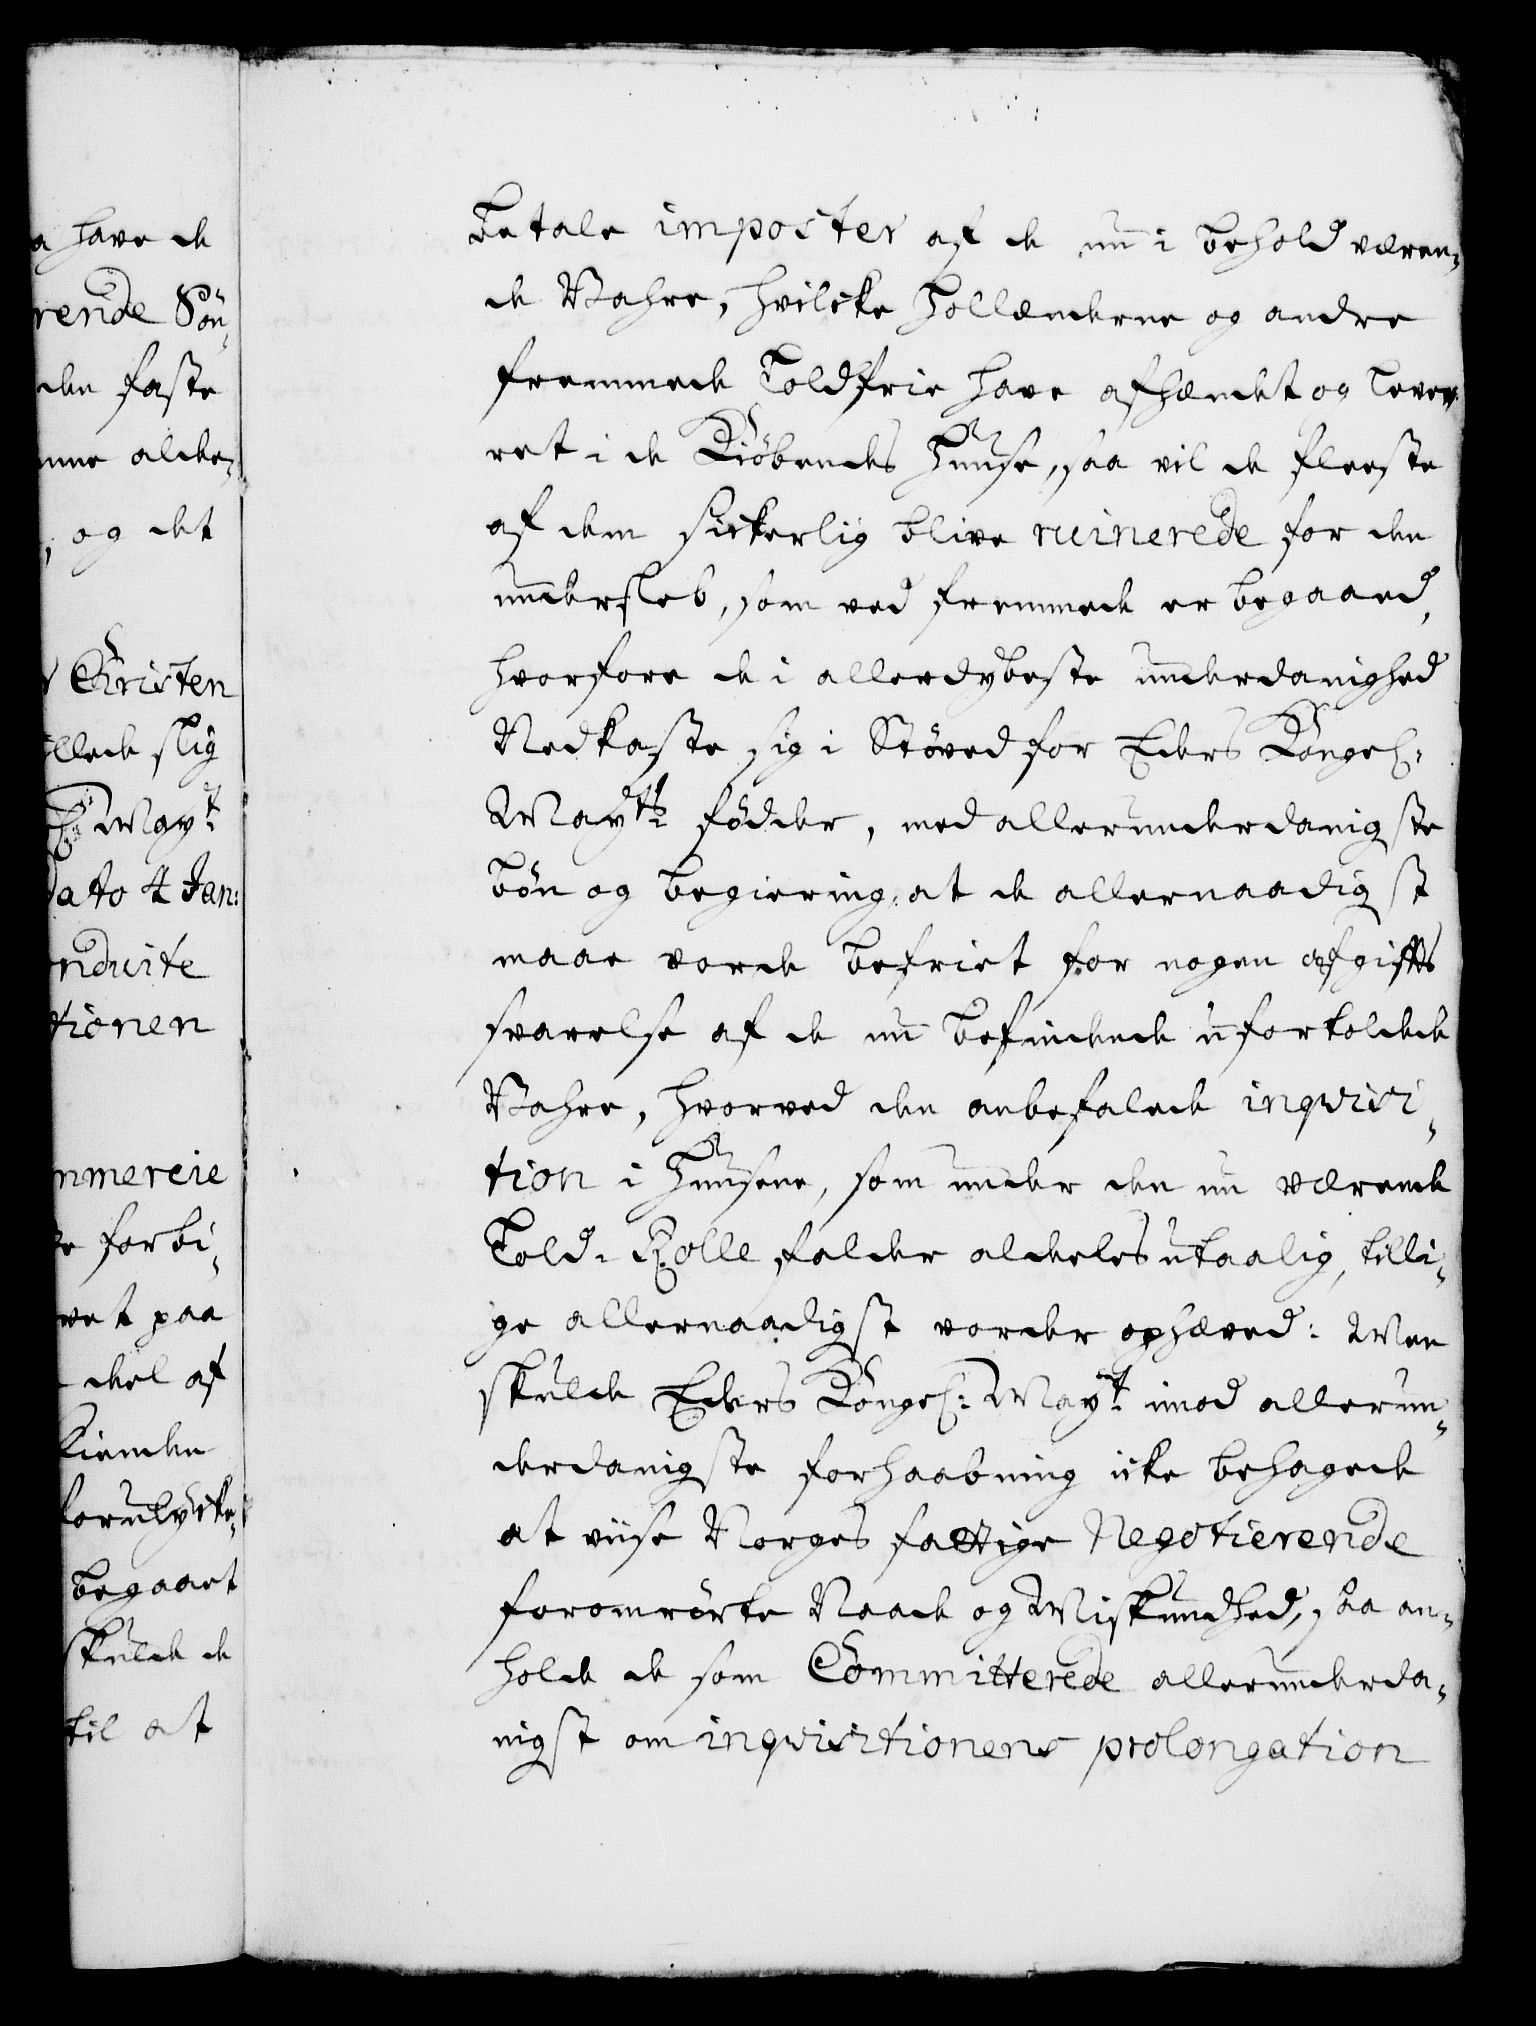 a have de
rende Søn¬
den faste
mme aldee¬
, og det
Christen
llede slig
Mayt:
dato 4 Jan:
nduite
tionen
mmercie
forbi¬
vet paa
deel af
kienden
forulycke¬
begaaet
skulde de
til at
betale imposter af de nu i behold væren¬
de Vahre, hvilcke Hollænderne og andre
fremmede Toldfrie have afhændet og lever¬
ret i de Kiøbendes Huuse, saa vil de fleeste
af dem sickerlig blive ruinerede for den
undersleb, som ved fremmede er begaaed,
hvorfore de i allerdybeste underdanighed
Nedkaste sig i Støved for Eders Kongel:
Maytts: fødder, med allerunderdanigste
bøn og begiering, at de allernaadigst
maae vorde befriet for nogen afgifts
svarelse af de nu befindende ufortoldede
Vahre, hvorved den anbefalede inqvisi¬
tion i Huusene, som under den nu værende
Told-Rolle falder aldeles utaalig, tilli¬
ge allernaadigst vorder ophæved: Men
skulde Eders Kongel: Mayt: imod allerun¬
derdanigste forhaabning icke behagede
at viise Norges fattige Negotierende
foromrørte Naade og Miskundhed, saa an¬
holde de som Committerede allerunderda¬
nigst om inqvisitionens prolongation